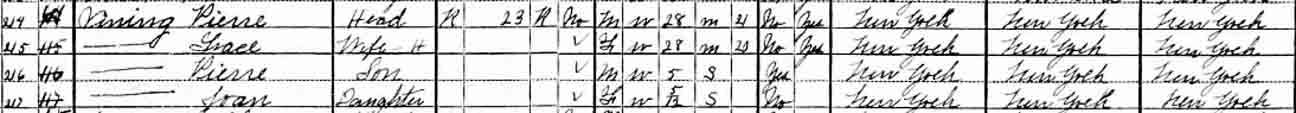 214 Vining Pierre Head R 23 R No M W 28 M 21 No Yes New York New York New York
215 115 — Grace Wife H ✓ F W 28 M 20 No Yes New York New York New York
216 116 — Pierre Son ✓ M W 5 S Yes New York New York New York
217 117 — Joan Daughter ✓ F W 5/12 S No New York New York New York